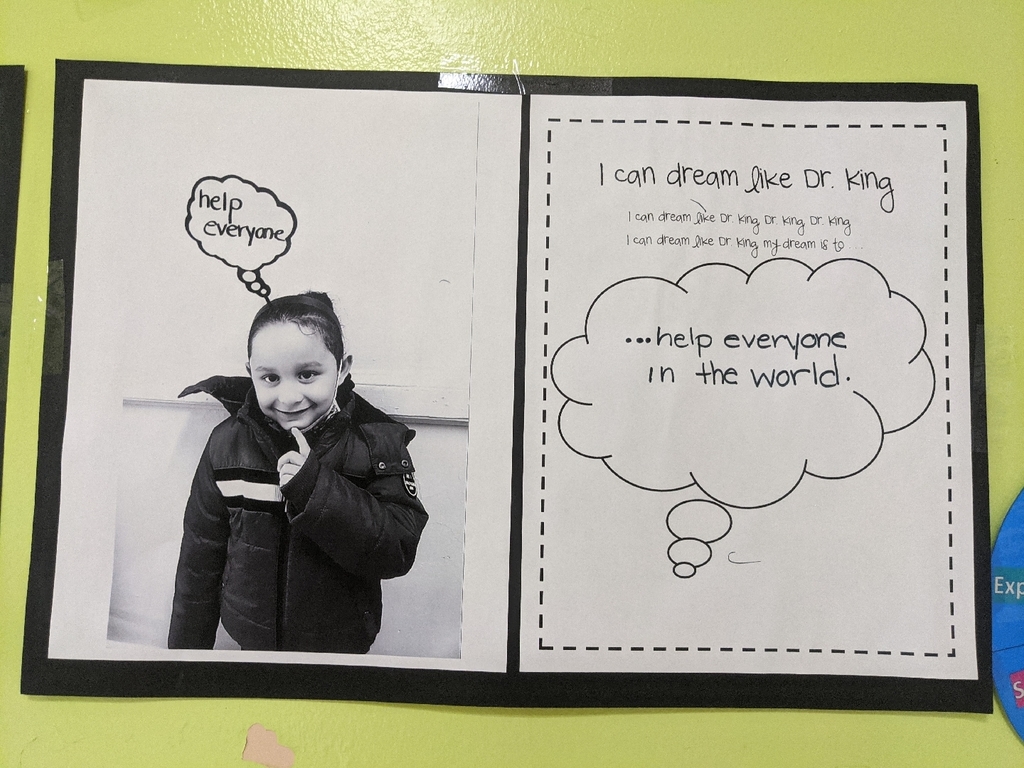 help
everyone
I can dream like Dr. King
I can dream like Dr. King, Dr. King, Dr. King
I can dream like Dr. King my dream is to ...
...help everyone
in the world.
Exp
S